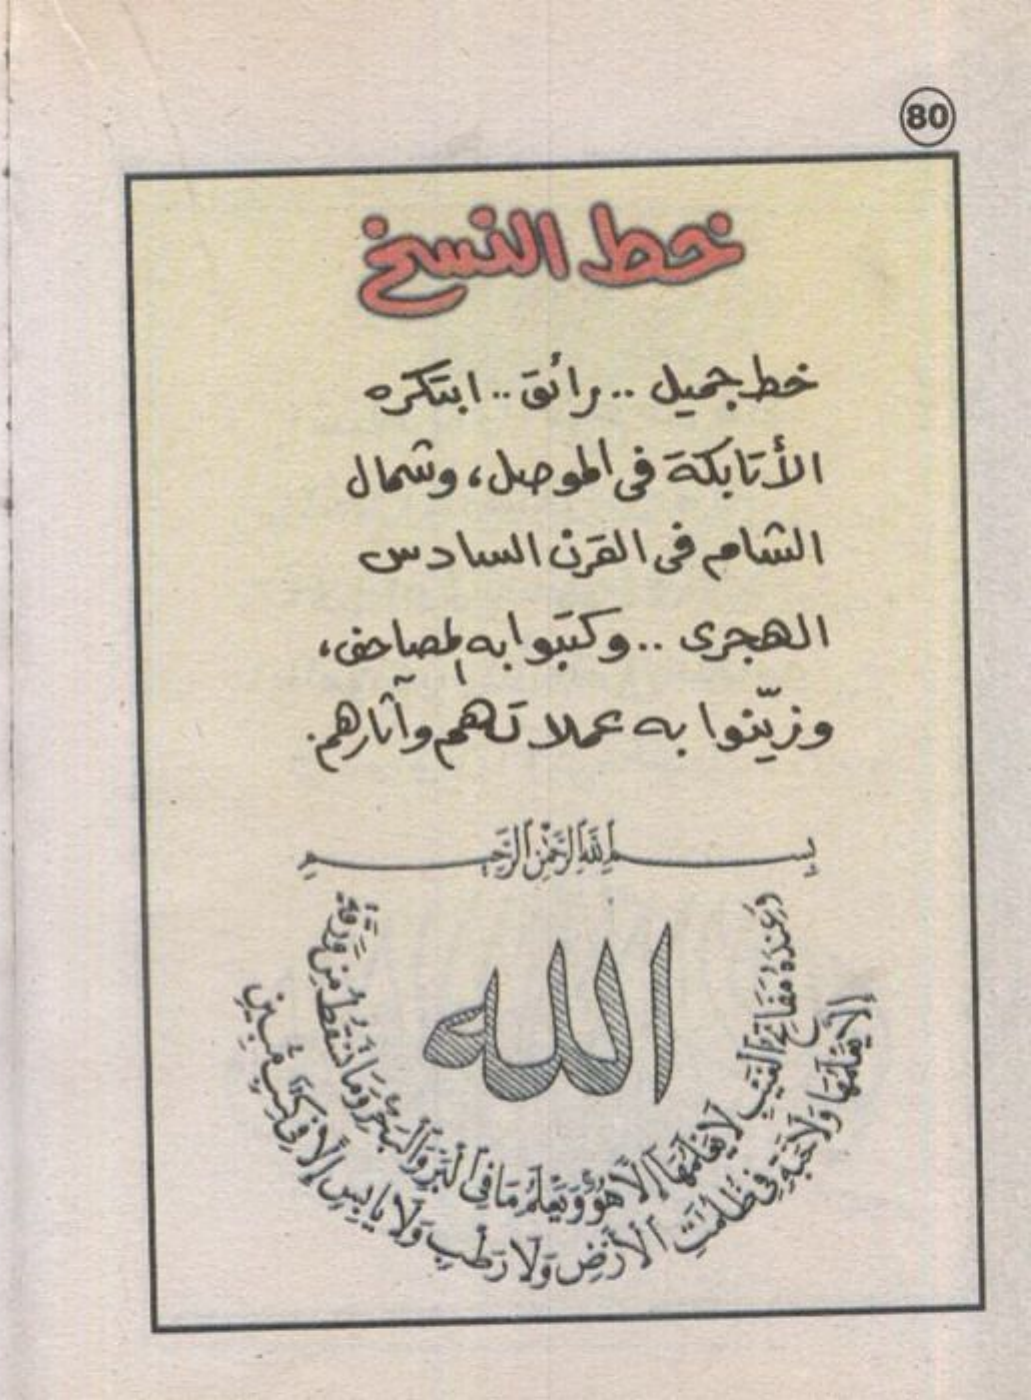 80
خط النسخ
خط جميل .. رائق .. ابتكره
الأتابكة فى الموصل، وشمال
الشام فى القرن السادس
الهجرى .. وكتبوا به المصاحف،
وزيّنوا به عملاتهم وآثارهم.
بسم الله الرحمن الرحيم
الله
وَعِندَهُ مَفَاتِحُ الْغَيْبِ لَا يَعْلَمُهَا إِلَّا هُوَ وَيَعْلَمُ مَا فِي الْبَرِّ وَالْبَحْرِ وَمَا تَسْقُطُ مِن وَرَقَةٍ
إِلَّا يَعْلَمُهَا وَلَا حَبَّةٍ فِي ظُلُمَٰتِ الْأَرْضِ وَلَا رَطْبٍ وَلَا يَابِسٍ إِلَّا فِي كِتَٰبٍ مُّبِينٍ